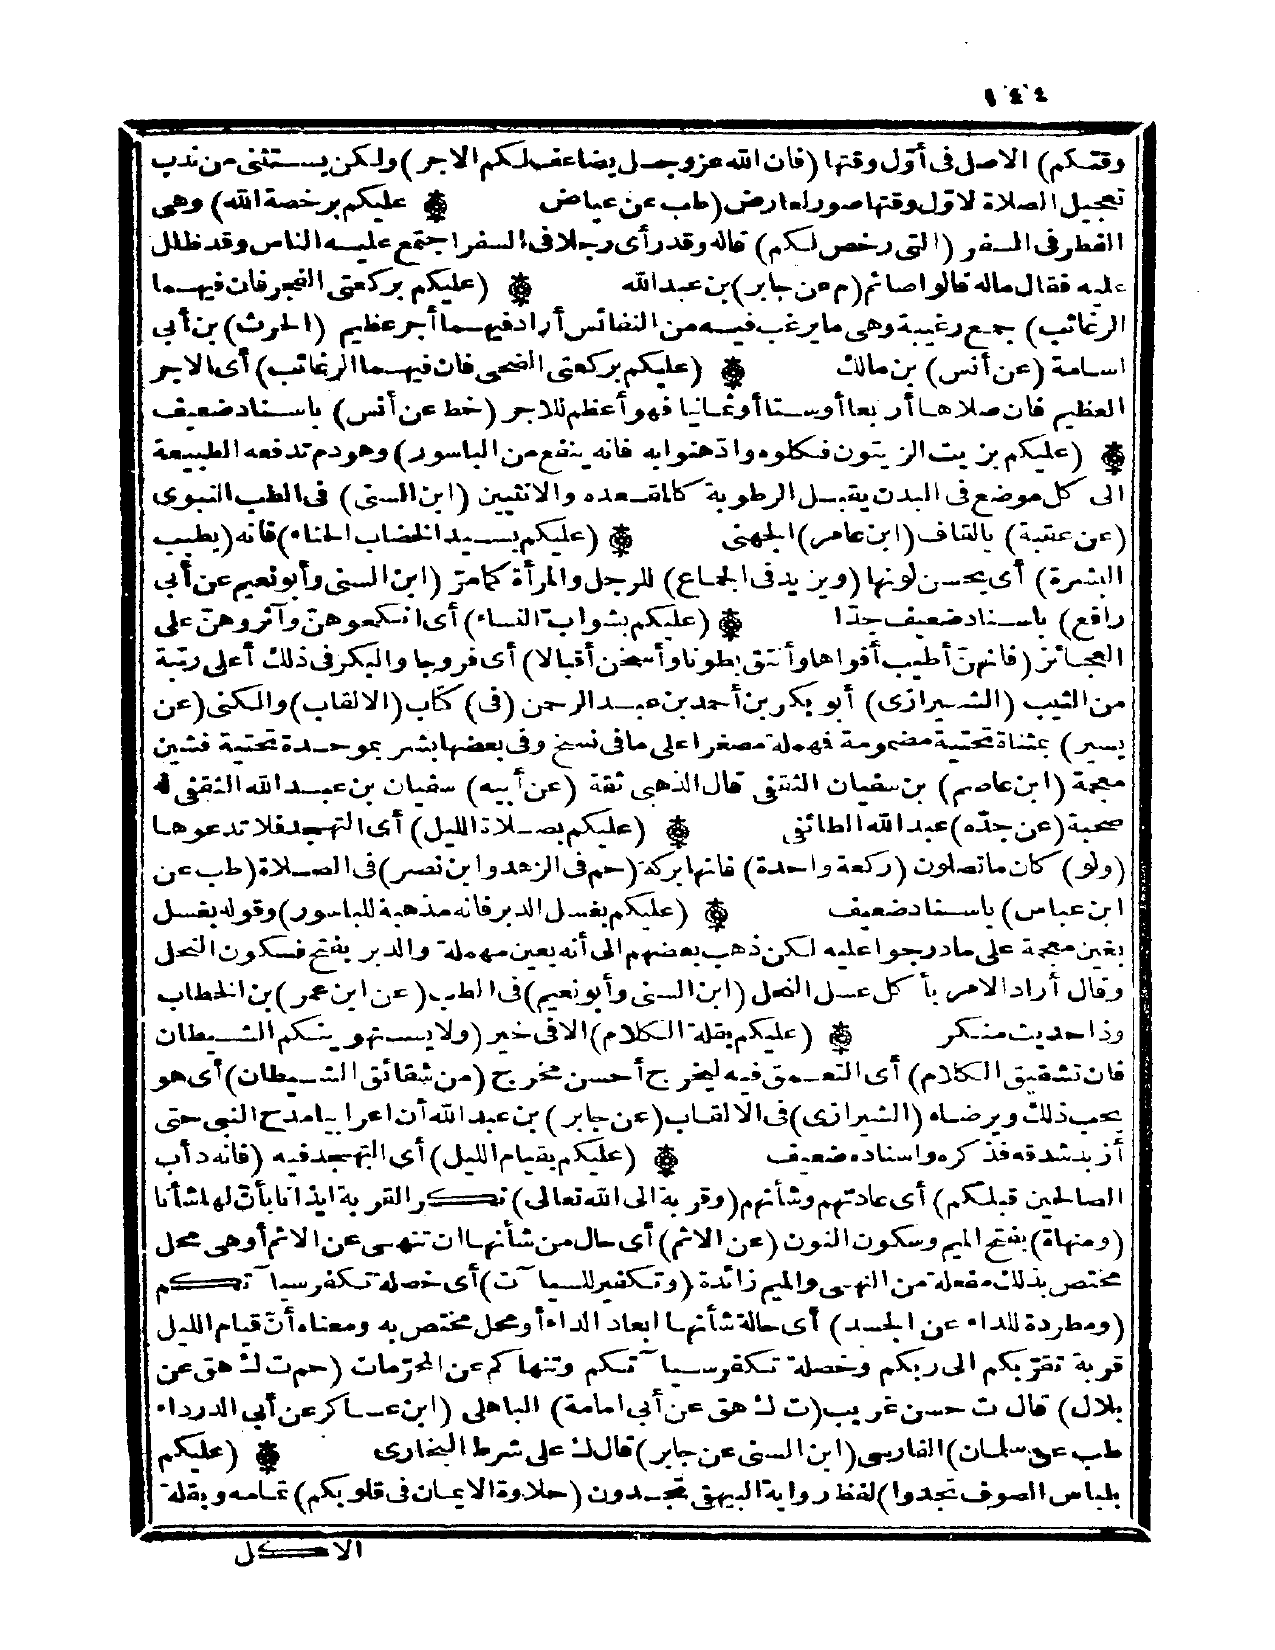 ١٤٤
وقتكم) الاصل فى أوّل وقتها (فان الله عز وجل يضاعف لكم الاجر) ولكن يستثنى من ندب
تعجيل الصلاة لاوّل وقتها صور لعارض (طب عن عياض ۞ عليكم برخصة الله) وهى
الفطر فى السفر (التى رخص لكم) قاله وقد رأى رجلا فى السفر اجتمع عليه الناس وقد ظلل
عليه فقال ماله قالوا صائم (م عن جابر) بن عبد الله ۞ (عليكم بركعتى الفجر فان فيهما
الرغائب) جمع رغيبة وهى ما يرغب فيه من النفائس أراد فيهما أجر عظيم (الحرث) بن أبى
اسامة (عن أنس) بن مالك ۞ (عليكم بركعتى الضحى فان فيهما الرغائب) أى الاجر
العظيم فان صلاها أربعا أو ستا أو ثمانيا فهو أعظم للاجر (خط عن أنس) باسناد ضعيف
۞ (عليكم بزيت الزيتون فكلوه وادّهنوا به فانه ينفع من الباسور) وهو دم تدفعه الطبيعة
الى كل موضع فى البدن يقبل الرطوبة كالمقعدة والانثيين (ابن السنى) فى الطب النبوى
(عن عقبة) بالقاف (ابن عامر) الجهنى ۞ (عليكم بسيد الخضاب الحناء) فانه (يطيب
البشرة) أى يحسن لونها (ويزيد فى الجماع) للرجل والمرأة كما مرّ (ابن السنى وأبو نعيم عن أبى
رافع) باسناد ضعيف جدّا ۞ (عليكم بشواب النساء) أى انكحوهنّ وآثروهنّ على
العجائز (فانهنّ أطيب أفواها وأنتق بطونا وأسخن أقبالا) أى فروجا والبكر فى ذلك أعلى رتبة
من الثيب (الشيرازى) أبو بكر بن أحمد بن عبد الرحمن (فى) كتاب (الالقاب) والكنى (عن
يسير) بمثناة تحتية مضمومة فمهملة مصغرا على ما فى نسخ وفى بعضها بشر بموحدة تحتية فشين
معجمة (ابن عاصم) بن سفيان الثقفى قال الذهبى ثقة (عن أبيه) سفيان بن عبد الله الثقفى له
صحبة (عن جدّه) عبد الله الطائفى ۞ (عليكم بصلاة الليل) أى التهجد فلا تدعوها
(ولو) كان ما تصلون (ركعة واحدة) فانها بركة (حم فى الزهد وابن نصر) فى الصلاة (طب عن
ابن عباس) باسناد ضعيف ۞ (عليكم بغسل الدبر فانه مذهبة للباسور) وقوله بغسل
بغين معجمة على ما درجوا عليه لكن ذهب بعضهم الى أنه بعين مهملة والدبر بفتح فسكون النحل
وقال أراد الامر بأكل عسل النحل (ابن السنى وأبو نعيم) فى الطب (عن ابن عمر) بن الخطاب
وذا حديث منكر ۞ (عليكم بقلة الكلام) الا فى خير (ولا يستهوينكم الشيطان
فان تشقيق الكلام) أى التعمق فيه ليخرج أحسن مخرج (من شقائق الشيطان) أى هو
يحب ذلك ويرضاه (الشيرازى) فى الالقاب (عن جابر) بن عبد الله أن اعرابيا مدح النبى حتى
أزبد شدقه فذكره واسناده ضعيف ۞ (عليكم بقيام الليل) أى التهجد فيه (فانه دأب
الصالحين قبلكم) أى عادتهم وشأنهم (وقربة الى الله تعالى) نكر القربة ايذانا بأنّ لها شأنا
(ومنهاة) بفتح الميم وسكون النون (عن الاثم) أى حال من شأنها ان تنهى عن الاثم أو هى محل
مختص بذلك مفعلة من النهى والميم زائدة (وتكفير للسيآت) أى خصلة تكفر سيآتكم
(ومطردة للداء عن الجسد) أى حالة شأنها ابعاد الداء أو محل مختص به ومعناه أنّ قيام الليل
قربة تقرّبكم الى ربكم وخصلة تكفر سيآتكم وتنهاكم عن المحرّمات (حم ت ك هق عن
بلال) قال ت حسن غريب (ت ك هق عن أبى امامة) الباهلى (ابن عساكر عن أبى الدرداء
طب عن سلمان) الفارسى (ابن السنى عن جابر) قال ك على شرط البخارى ۞ (عليكم
بلباس الصوف تجدوا) لفظ رواية البيهقى تجدون (حلاوة الايمان فى قلوبكم) تمامه وبقلة
الاكل